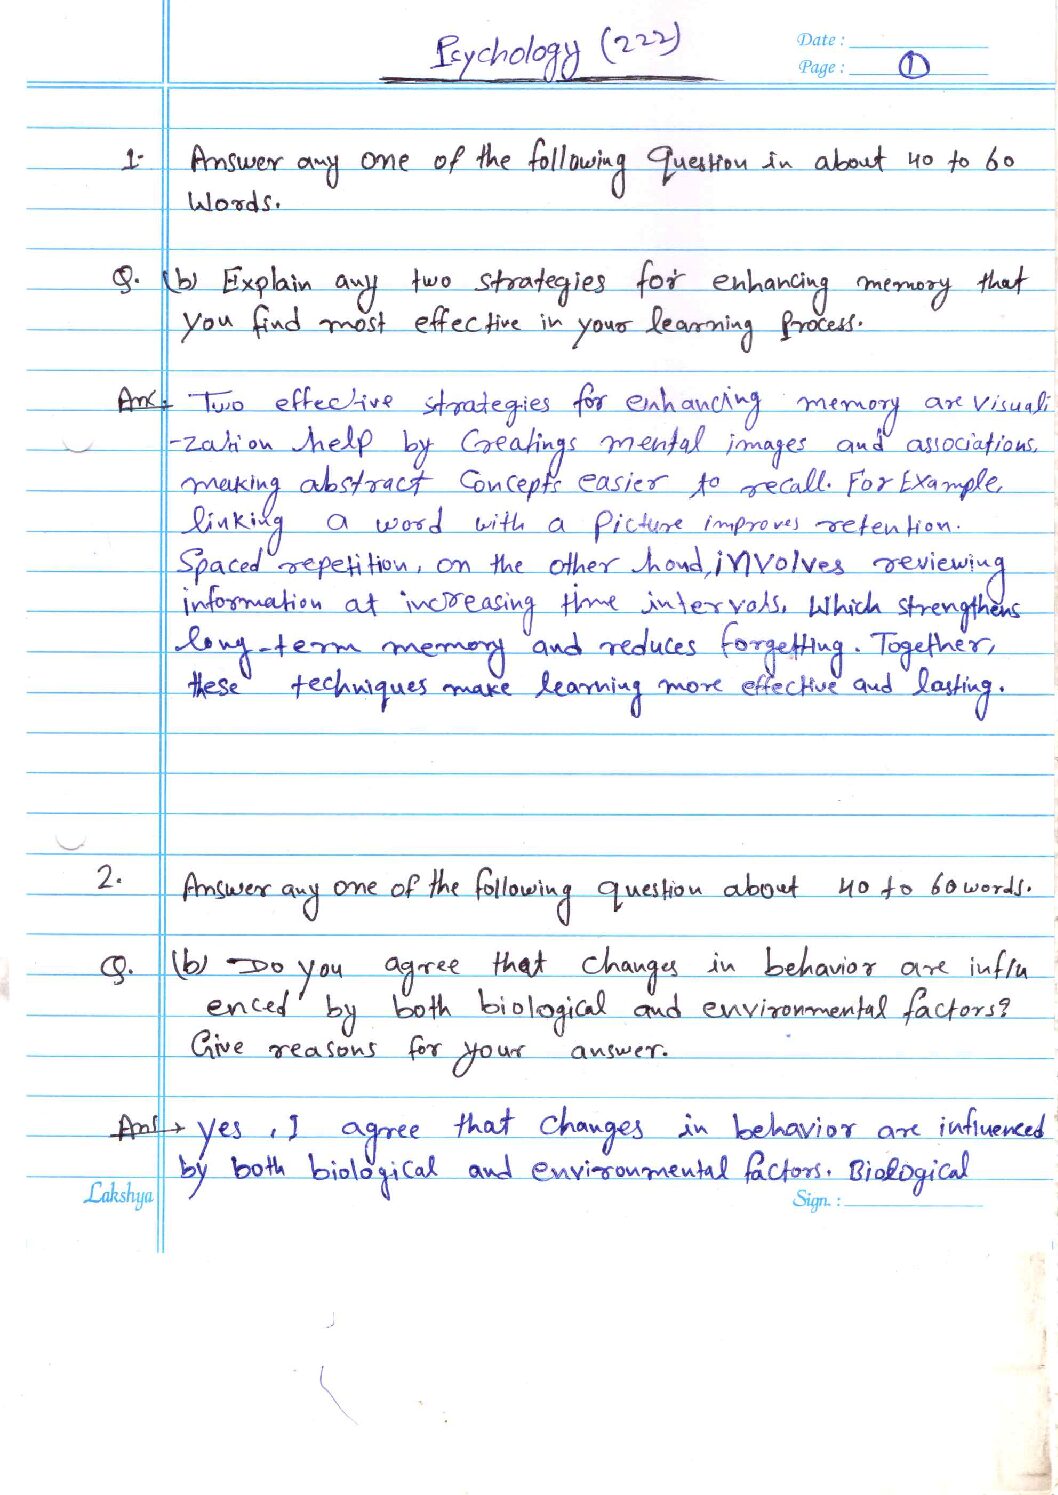 Psychology (222)
Date :
Page : 1
1- Answer any one of the following Question in about 40 to 60
Words.
Q. (b) Explain any two strategies for enhancing memory that
you find most effective in your learning process.
Ans: Two effective strategies for enhancing memory are visuali
-zation help by Creatings mental images and associations,
making abstract Concepts easier to recall. For Example,
linking a word with a picture improves retention.
Spaced repetition, on the other hand, involves reviewing
information at increasing time intervals. Which strengthens
long-term memory and reduces forgetting. Together,
these techniques make learning more effective and lasting.
2. Answer any one of the following question about 40 to 60 words.
Q. (b) Do you agree that changes in behavior are influ
enced by both biological and environmental factors?
Give reasons for your answer.
Ans → yes, I agree that changes in behavior are influenced
by both biological and environmental factors. Biological
Lakshya
Sign. :